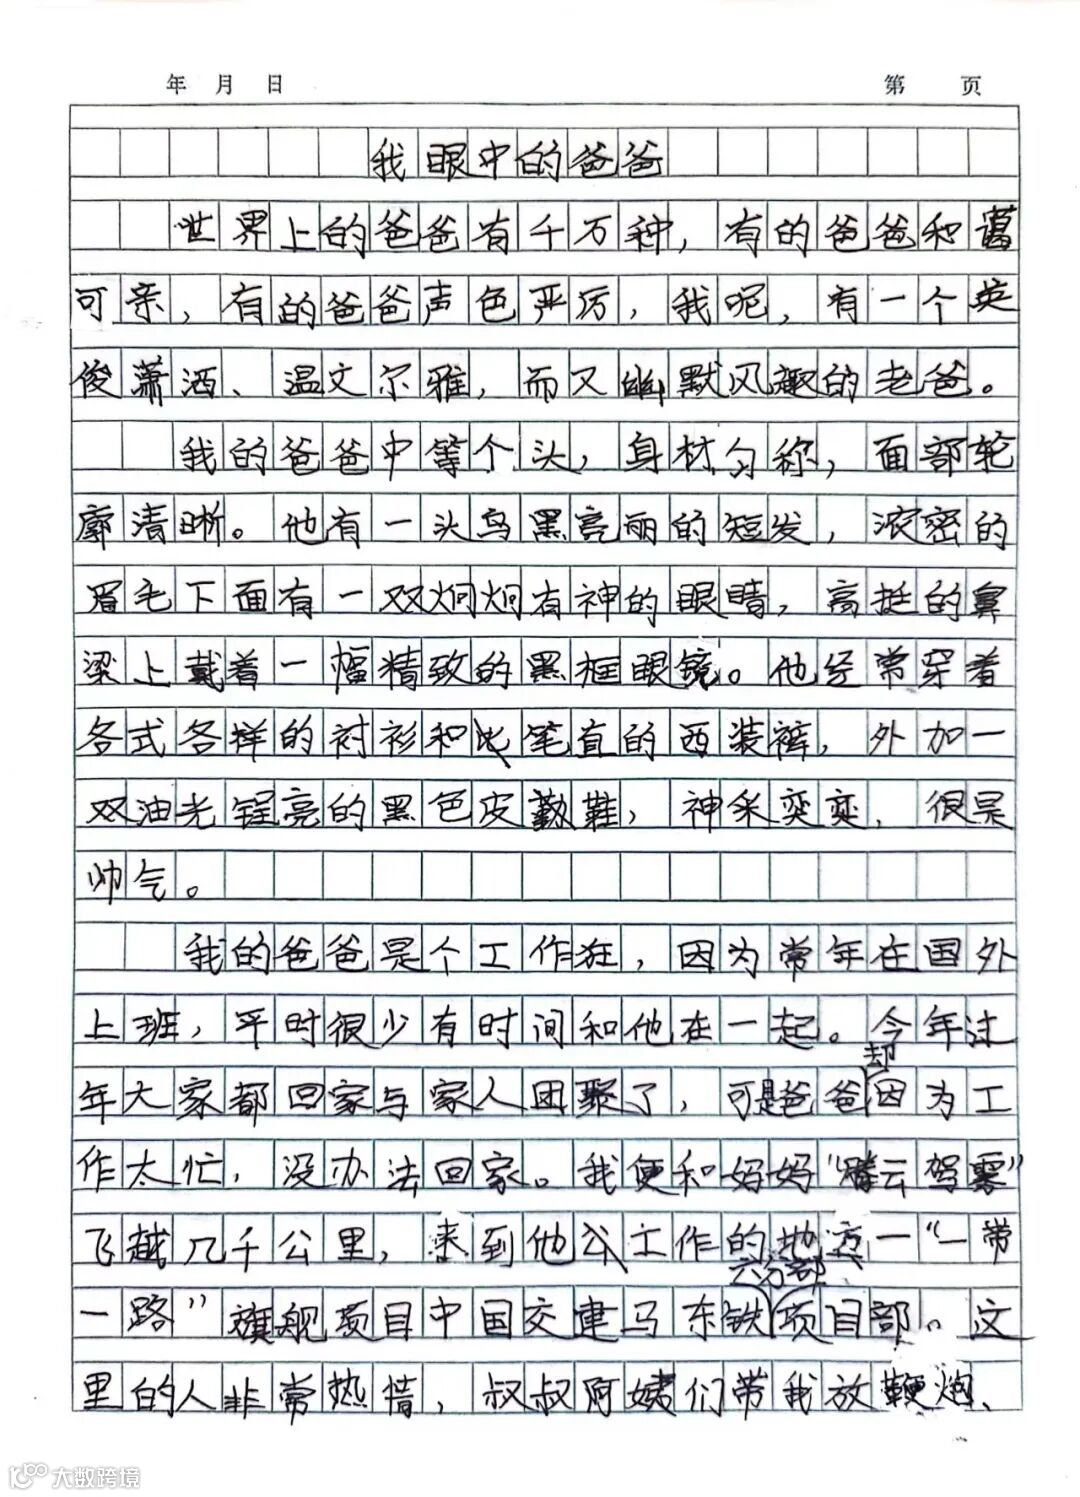 年 月 日 第 页
我眼中的爸爸
世界上的爸爸有千万种，有的爸爸和蔼
可亲，有的爸爸声色严厉，我呢，有一个英
俊潇洒、温文尔雅，而又幽默风趣的老爸。
我的爸爸中等个头，身材匀称，面部轮
廓清晰。他有一头乌黑亮丽的短发，浓密的
眉毛下面有一双炯炯有神的眼睛，高挺的鼻
梁上戴着一幅精致的黑框眼镜。他经常穿着
各式各样的衬衫和笔直的西装裤，外加一
双油光锃亮的黑色皮鞋，神采奕奕，很是
帅气。
我的爸爸是个工作狂，因为常年在国外
上班，平时很少有时间和他在一起。今年过
年大家都回家与家人团聚了，可是爸爸却因为工
作太忙，没办法回家。我便和妈妈“腾云驾雾”
飞越几千公里，来到他工作的地方一“一带
一路”旗舰项目中国交建马东铁六分部项目部。这
里的人非常热情，叔叔阿姨们带我放鞭炮、
大数跨境